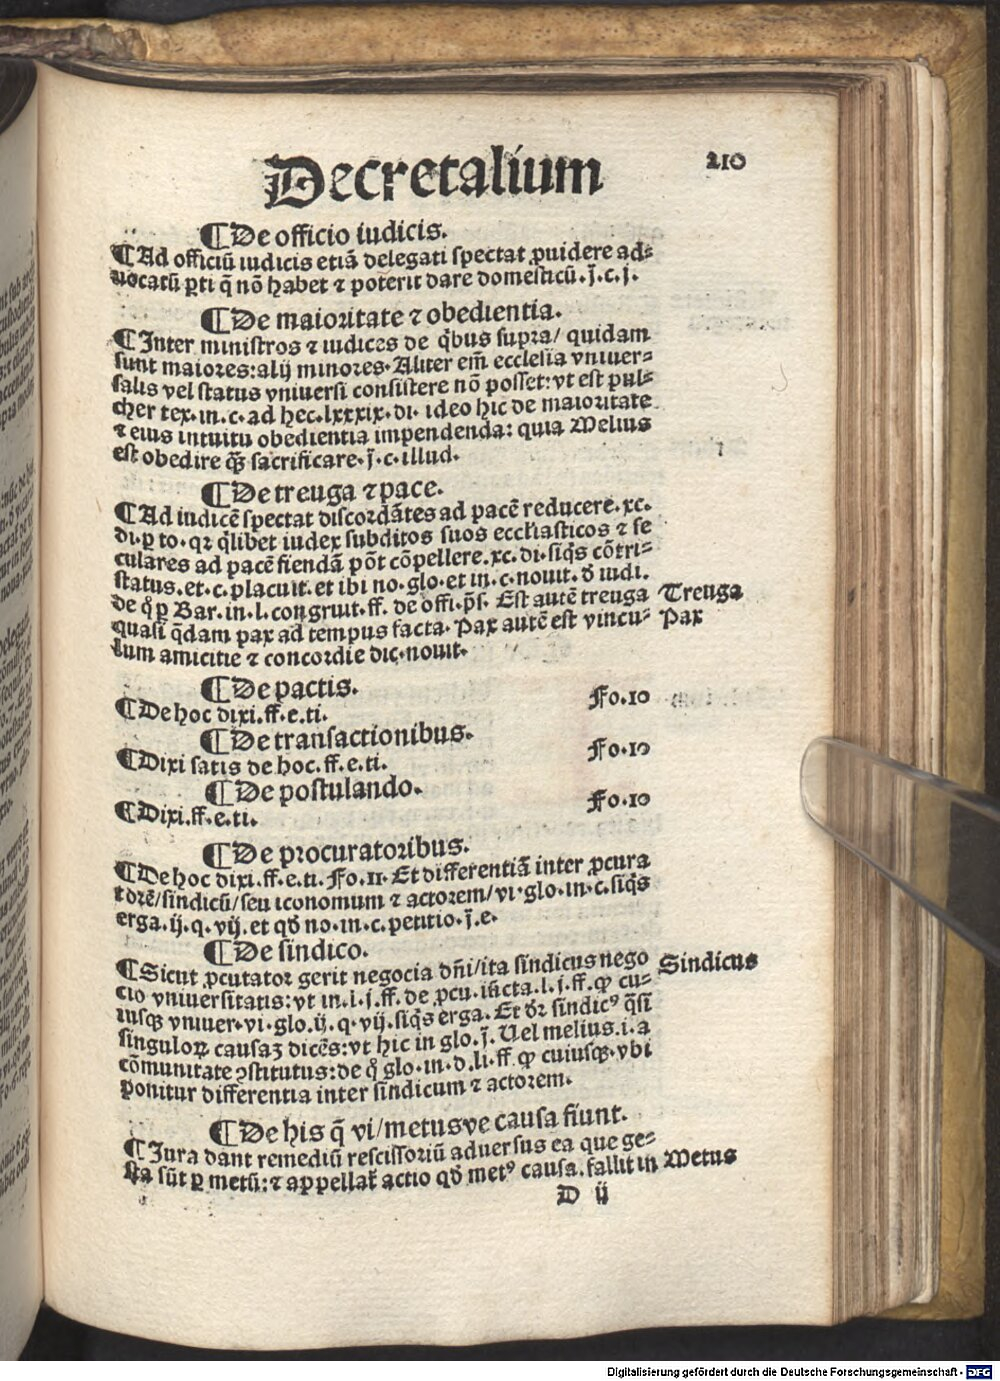 Decretalium 210
¶ De officio iudicis.
¶ Ad officiū iudicis etiā delegati spectat ꝓuidere ad⸗
uocatū ꝑti q̄ nō habet ⁊ poterit dare domesticū. j̄. c. j.
¶ De maioritate ⁊ obedientia.
¶ Inter ministros ⁊ iudices de q̇bus supra/ quidam
sunt maiores: alij minores. Aliter em̄ ecclesia vniuer⸗
salis vel status vniuersi consistere nō posset: vt est pul⸗
cher tex. in. c. ad hec. lxxxix. di. ideo hic de maioritate
⁊ eius intuitu obedientia impendenda: quia Melius
est obedire q̄ꝫ sacrificare. j̄. c. illud.
¶ De treuga ⁊ pace.
¶ Ad iudicē spectat discordātes ad pacē reducere. xc.
di. ꝑ to. qꝛ q̇libet iudex subditos suos ecclīasticos ⁊ se
culares ad pacē fiendā pōt cōpellere. xc. di. siq̇s cōtri⸗
status. et. c. placuit. et ibi no. glo. et in. c. nouit. đ iudi.
de q̊ ꝑ Bar. in. l. congruit. ff. de offi. p̄s. Est autē treuga Treuga
quasi q̄dam pax ad tempus facta. Pax autē est vincu⸗ Pax
lum amicitie ⁊ concordie dic. nouit.
¶ De pactis.
¶ De hoc dixi. ff. e. ti. Fo. 10
¶ De transactionibus.
¶ Dixi satis de hoc. ff. e. ti. Fo. 10
¶ De postulando.
¶ Dixi. ff. e. ti. Fo. 10
¶ De procuratoribus.
¶ De hoc dixi. ff. e. ti. Fo. 11. Et differentiā inter ꝓcura
torē/ sindicū/ seu iconomum ⁊ actorem/ vi. glo. in. c. siq̇s
erga. ij. q. vij. et qđ no. in. c. petitio. j̄. e.
¶ De sindico.
¶ Sicut ꝓcutator gerit negocia dn̄i/ ita sindicus nego Sindicus
cio vniuersitatis: vt in. l. j. ff. de ꝓcu. iūcta. l. j. ff. ꝙ cu⸗
iusqꝫ vniuer. vi. glo. ij. q. vij. siq̇s erga. Et đr sindicꝰ q̄si
singuloꝝ causaꝫ dicēs: vt hic in glo. j̄. Vel melius. i. a
cōmunitate ꝯstitutus: de q̊ glo. in. d. li. ff ꝙ cuiusqꝫ. vbi
ponitur differentia inter sindicum ⁊ actorem.
¶ De his q̄ vi/ metusve causa fiunt.
¶ Jura dant remediū rescissoriū aduersus ea que ge⸗
sta sūt ꝑ metū: ⁊ appellat̄ actio qđ metꝰ causa. fallit in Metus
D ij
Digitalisierung gefördert durch die Deutsche Forschungsgemeinschaft - DFG